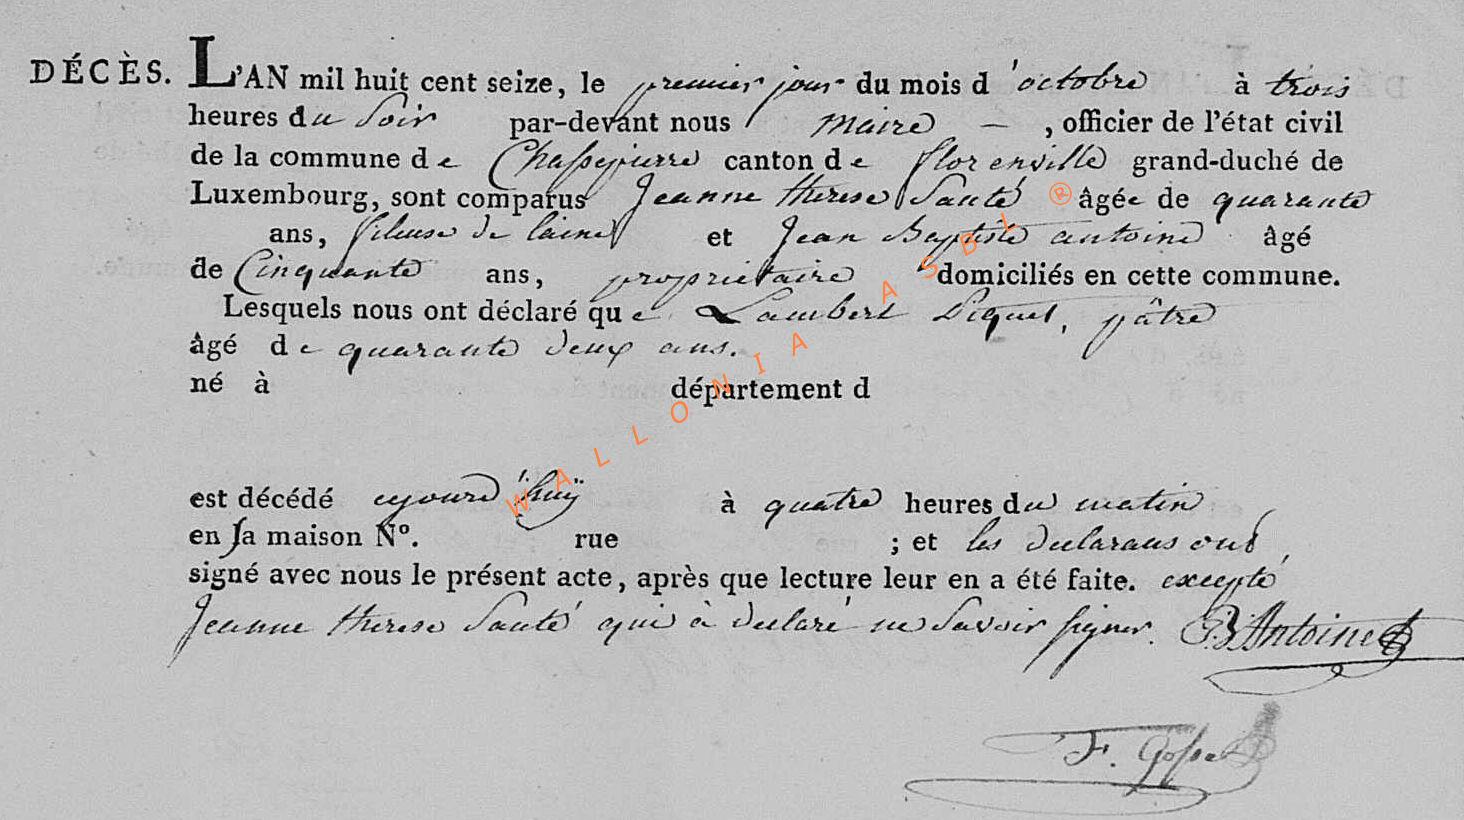 DÉCÈS. L'AN mil huit cent seize, le premier jour du mois d'octobre à trois
heures du Soir par-devant nous Maire — , officier de l'état civil
de la commune de Chassepierre canton de florenville grand-duché de
Luxembourg, sont comparus Jeanne therese Santé âgée de quarante
ans, fileuse de laine et Jean Baptiste antoine âgé
de Cinquante ans, proprietaire domiciliés en cette commune.
Lesquels nous ont déclaré que Lambert Piquet, pâtre
âgé de quarante deux ans.
né à département d
est décédé ajourd'huÿ à quatre heures du matin
en sa maison N°. rue ; et les declarans ont
signé avec nous le présent acte, après que lecture leur en a été faite. excepté
Jeanne therese Santé qui à declaré ne Savoir signer. Antoine
F.
WALLONIA ASBL ®